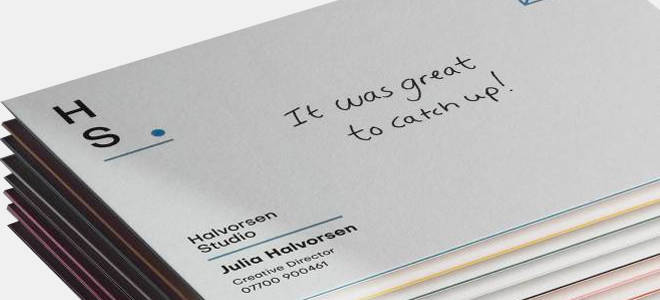 H
S
It was great
to catch up!
Halvorsen
Studio
Julia Halvorsen
Creative Director
07700 900461